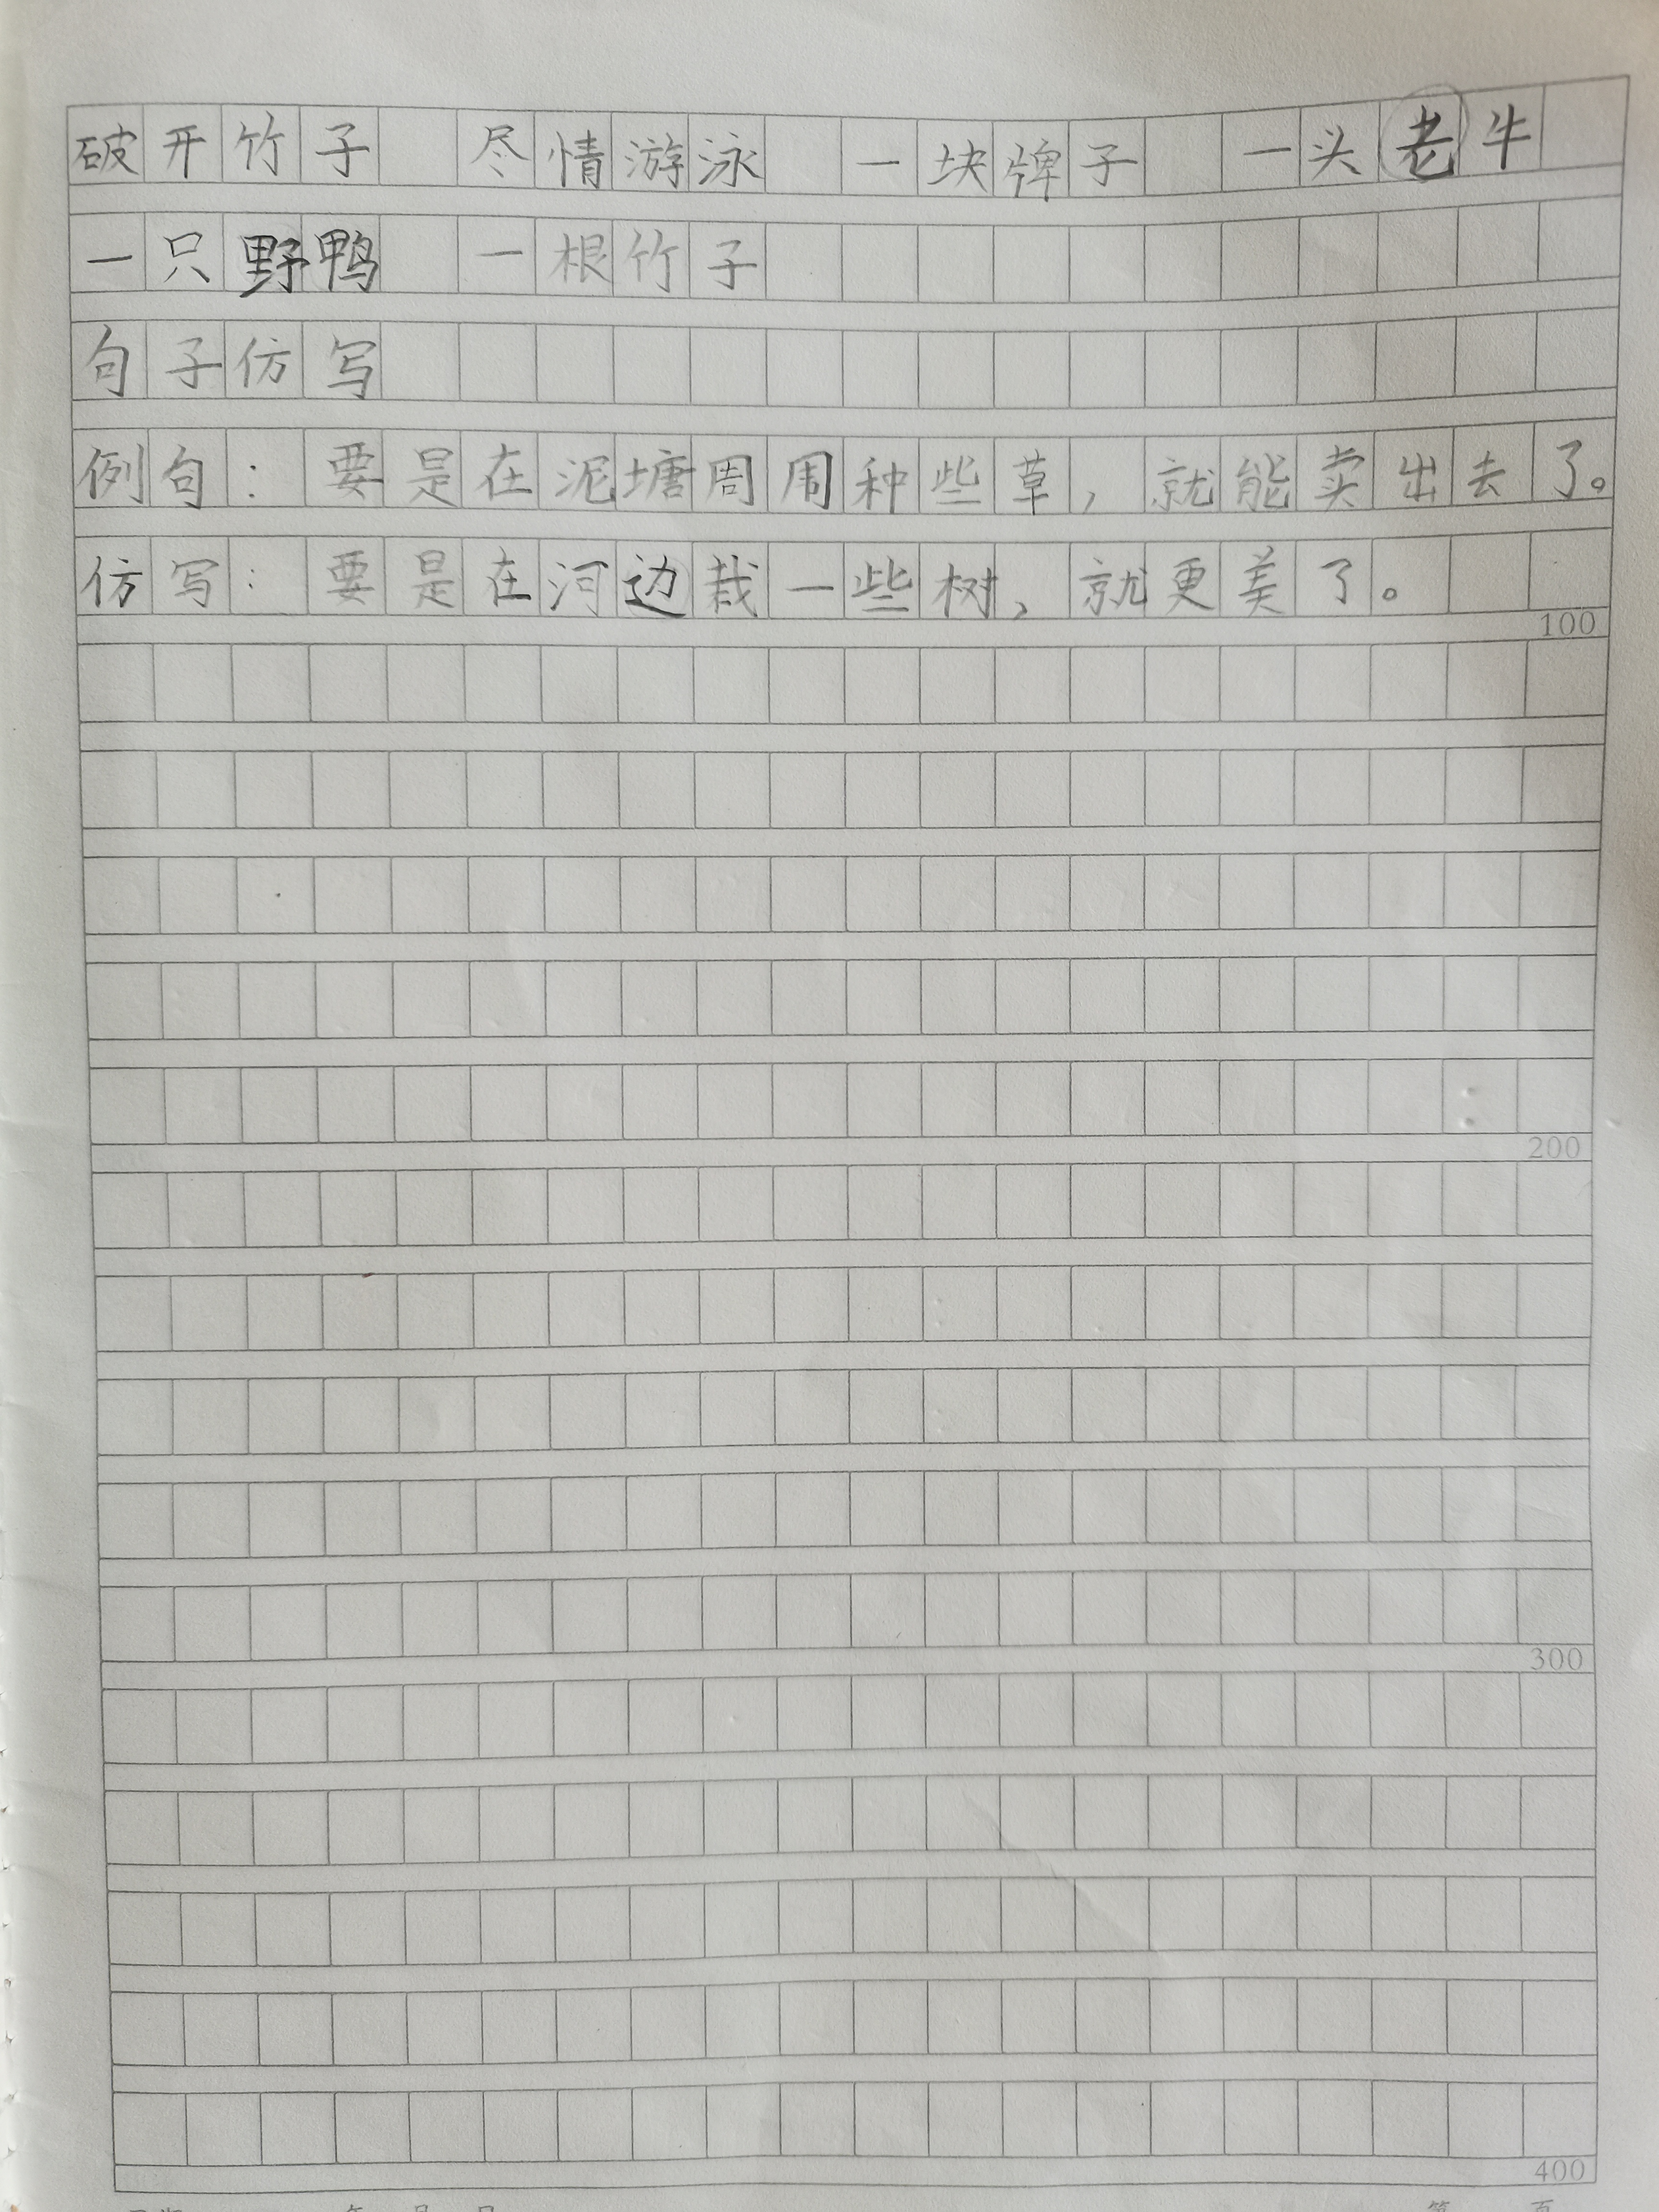 破开竹子 尽情游泳 一块牌子 一头老牛
一只野鸭 一根竹子
句子仿写
例句：要是在泥塘周围种些草，就能卖出去了。
仿写：要是在河边栽一些树，就更美了。
100
200
300
400